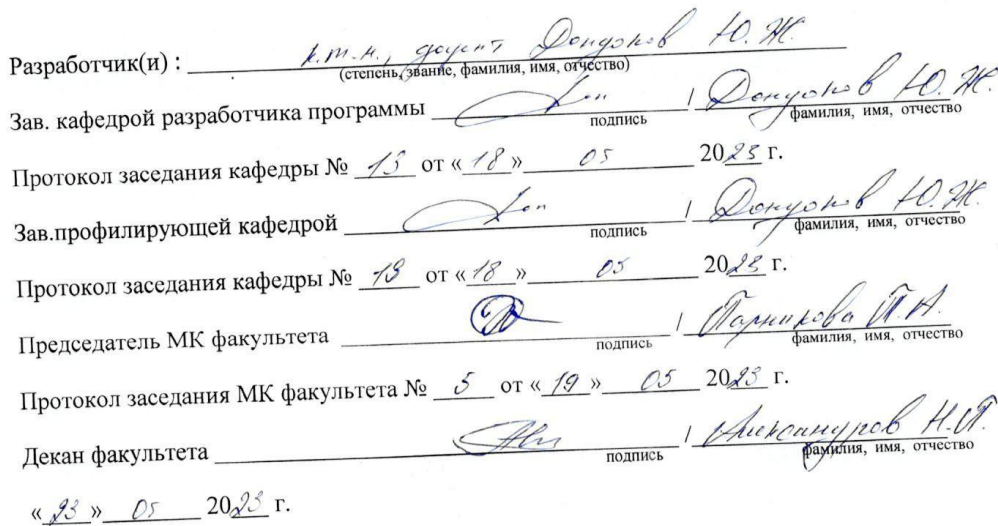 Разработчик(и) : к.т.н., доцент Дондоков Ю.Ж.
(степень, звание, фамилия, имя, отчество)
Зав. кафедрой разработчика программы / Дондоков Ю.Ж.
подпись фамилия, имя, отчество
Протокол заседания кафедры № 13 от «18» 05 2023 г.
Зав.профилирующей кафедрой / Дондоков Ю.Ж.
подпись фамилия, имя, отчество
Протокол заседания кафедры № 13 от «18» 05 2023 г.
Председатель МК факультета / Парникова Т.А.
подпись фамилия, имя, отчество
Протокол заседания МК факультета № 5 от «19» 05 2023 г.
Декан факультета / Н.П.
подпись фамилия, имя, отчество
«23» 05 2023 г.